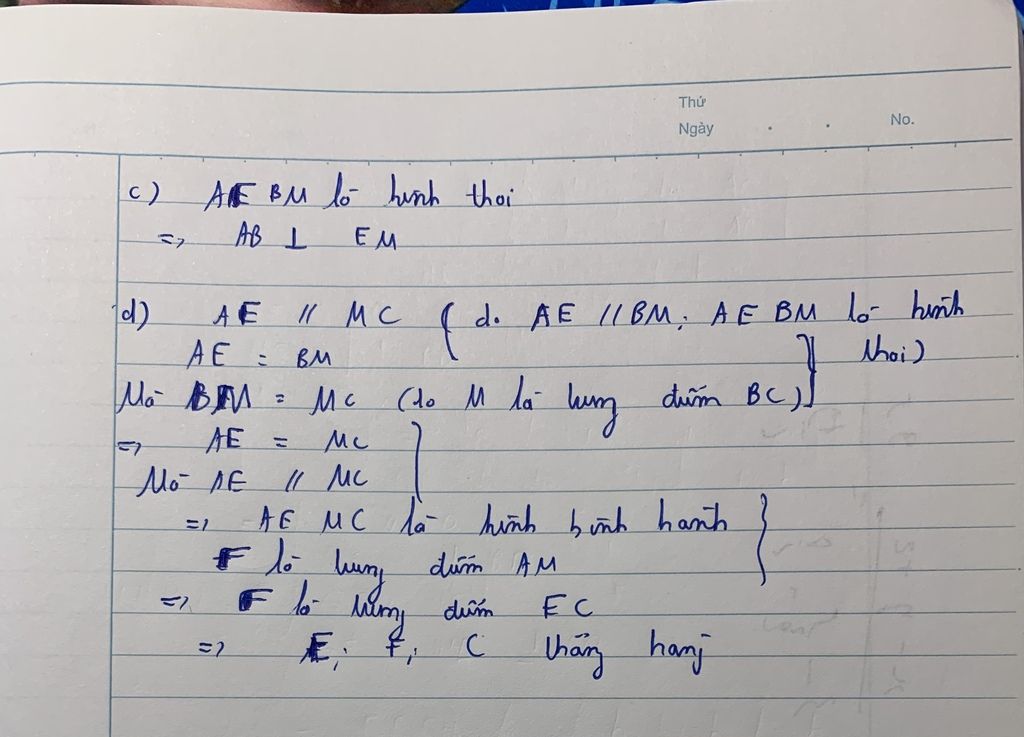 Thứ
Ngày . . No.
c) AEBM là hình thoi
=> AB ⊥ EM
d) AE // MC ( do AE // BM; AEBM là hình thoi)
AE = BM
Mà BM = MC (do M là trung điểm BC)
=> AE = MC
Mà AE // MC
=> AEMC là hình bình hành
F là trung điểm AM
=> F là trung điểm EC
=> E; F; C thẳng hàng